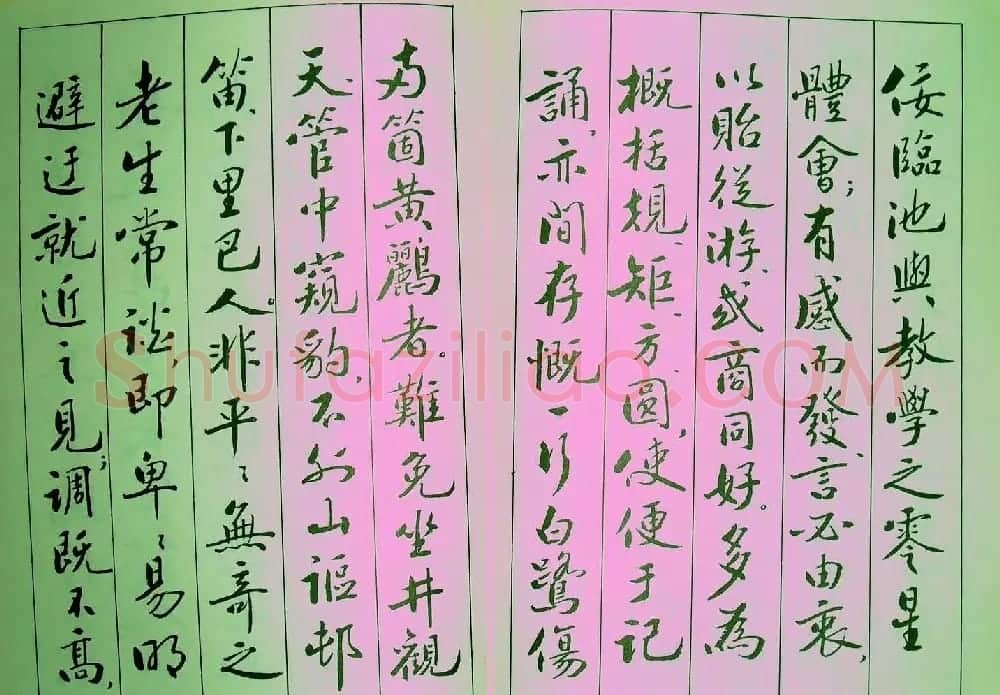 佞臨池與教學之零星
體會；有感而發、言必由衷，
以貽從游、或商同好。多為
概括規、矩、方、圓，使便于記
誦，亦間存慨一行白鷺傷
两箇黄鸝者。難免坐井觀
天、管中窺豹，不外山謳邨
笛、下里巴人。非平〻無奇之
老生常談即卑〻易明
避迂就近之見；调既不高，
Shufaziliao.COM